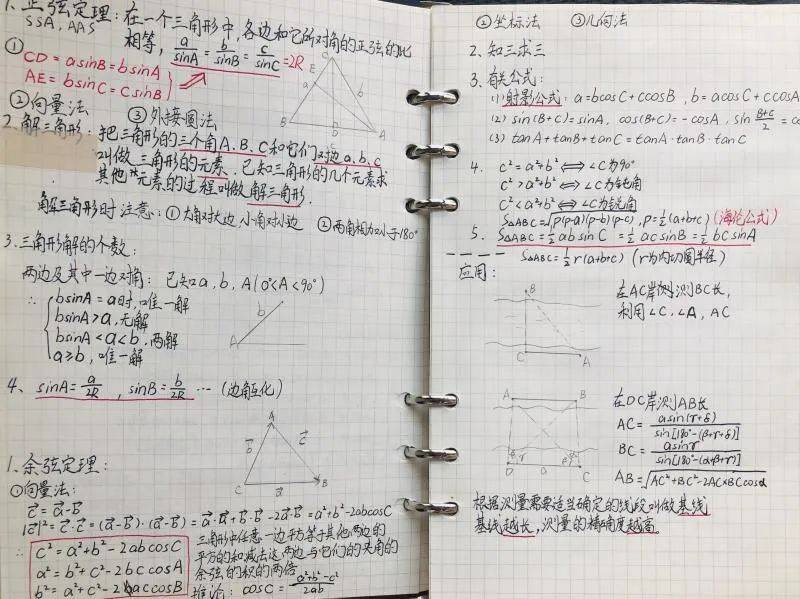 1. 正弦定理: 在一个三角形中, 各边和它所对角的正弦的比
SSA, AAS 相等, a/sinA = b/sinB = c/sinC = 2R
① CD = asinB = bsinA
AE = bsinC = csinB
②向量法 ③外接圆法
C
E
a
b
D
B
A
2. 解三角形: 把三角形的三个角A、B、C和它们对边a、b、c
叫做三角形的元素. 已知三角形的几个元素求
其他元素的过程叫做解三角形.
解三角形时注意: ①大角对大边, 小角对小边 ②两角相加小于180°
3. 三角形解的个数:
两边及其中一边对角: 已知a, b, A (0°<A<90°)
∴ bsinA = a时, 唯一解
bsinA > a, 无解
bsinA < a < b, 两解
a ≥ b, 唯一解
b
A
4. sinA = a/2R , sinB = b/2R ··· (边角互化)
A
b
c
C
a
B
1. 余弦定理:
①向量法:
c = a - b
|c|² = c·c = (a-b)·(a-b) = a·a + b·b - 2a·b = a²+b²-2abcosC
∴ c² = a²+b²-2abcosC
a² = b²+c²-2bccosA
b² = a²+c²-2accosB
三角形中任意一边平方等于其他两边的
平方的和减去这两边与它们的夹角的
余弦的积的两倍
推论: cosC = a²+b²-c²/2ab
②坐标法 ③几何法
2. 知三求三
3. 有关公式:
(1) 射影公式: a = bcosC + ccosB , b = acosC + ccosA
(2) sin(B+C) = sinA, cos(B+C) = -cosA, sin B+C/2 = co
(3) tanA + tanB + tanC = tanA · tanB · tanC
4. c² = a²+b² ⟺ ∠C为90°
c² > a²+b² ⟺ ∠C为钝角
c² < a²+b² ⟺ ∠C为锐角
S△ABC = √p(p-a)(p-b)(p-c) , p = ½(a+b+c) (海伦公式)
5. S△ABC = ½absinC = ½acsinB = ½bcsinA
S△ABC = ½r(a+b+c) (r为内切圆半径)
应用:
B
C
A
在AC岸侧, 测BC长,
利用∠C, ∠A, AC
A
B
D
a
C
在DC岸测AB长
AC = asin(γ+δ)/sin[180°-(β+γ+δ)]
BC = asinγ/sin[180°-(α+β+γ)]
AB = √AC²+BC²-2AC×BCcosα
根据测量需要适当确定的线段叫做基线
基线越长, 测量的精确度越高.